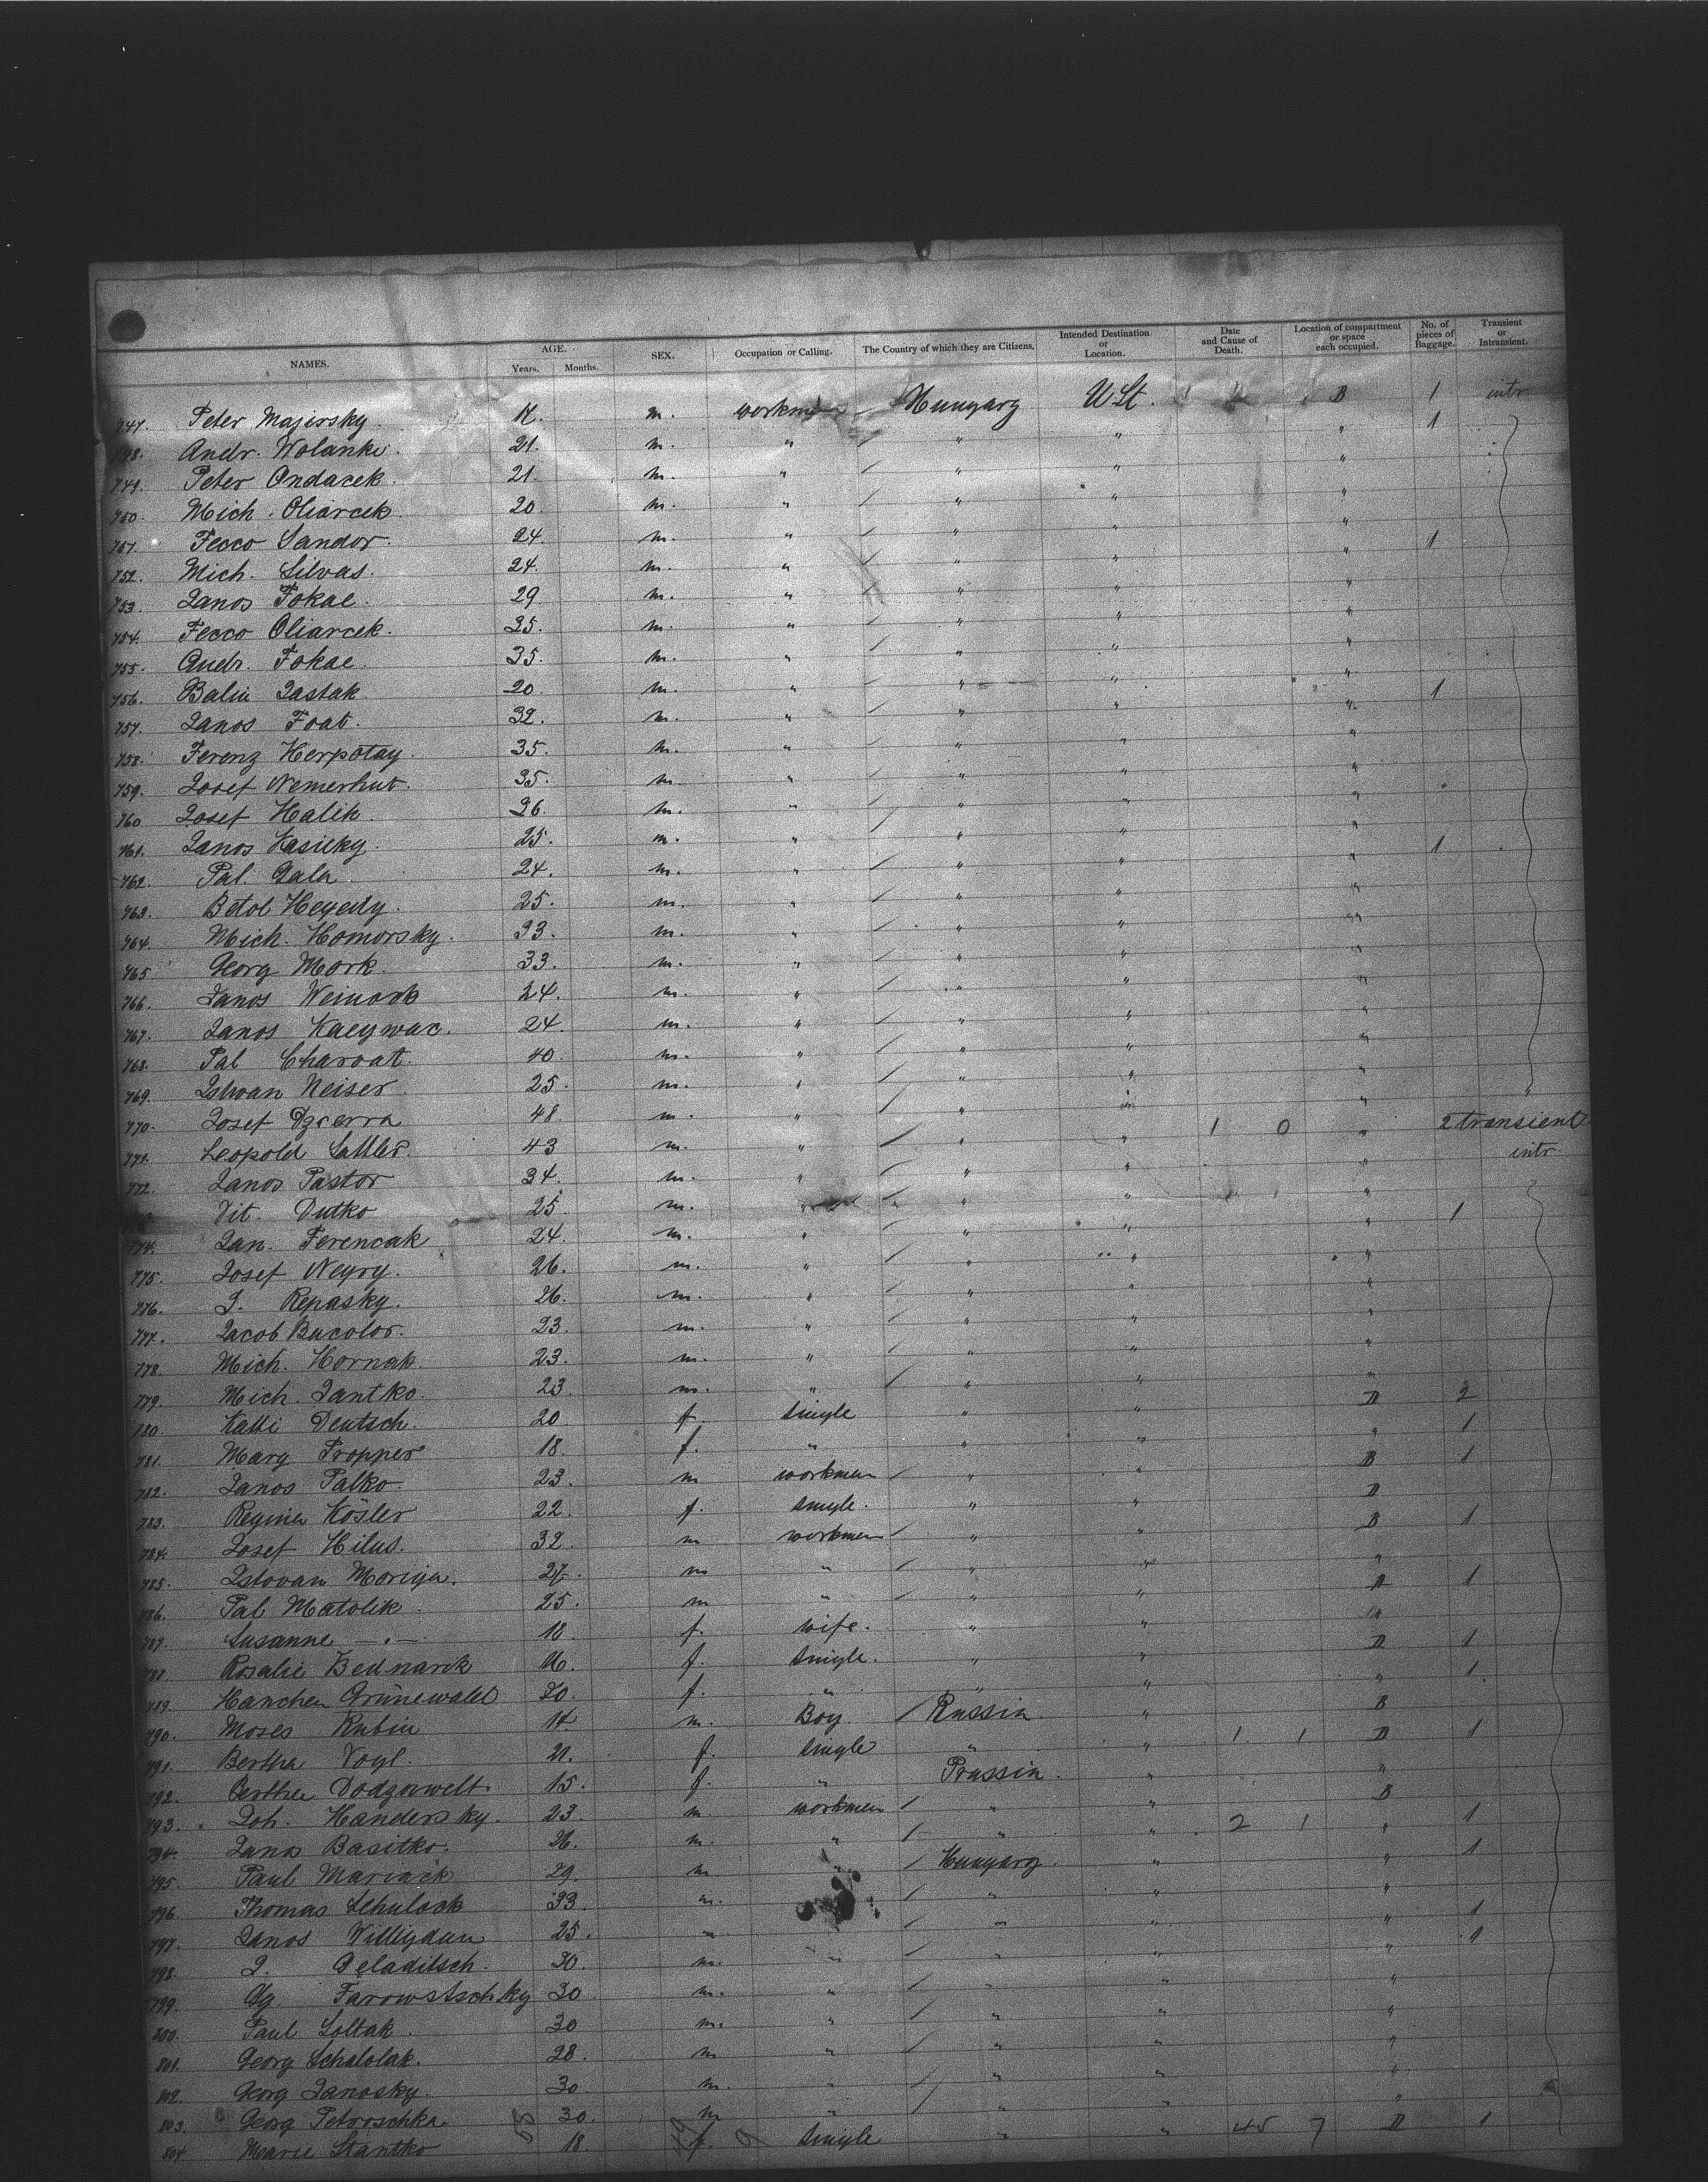 NAMES. AGE. Years. Months. SEX. Occupation or Calling. The Country of which they are Citizens. Intended Destination or Location. Date and Cause of Death. Location of compartment or space each occupied. No. of pieces of Baggage. Transient or Intransient.
747. Peter Majersky. m. workmen Hungary U St. B 1 intr
748. Andr. Wolanki. 21. m. " " " " 1
749. Peter Ondacek. 21. m. " " " "
750. Mich. Oliarcek. 20. m. " " " "
751. Fecco Sandor. 24. m. " " " "
752. Mich. Silvas. 24. m. " " " " 1
753. Janos Fokae. 29. m. " " " "
754. Fecco Oliarcek. 25. m. " " " "
755. Andr. Fokae. 35. m. " " " "
756. Balin Jastak. 20. m. " " " "
757. Janos Foat. 32. m. " " " " 1
758. Ferenz Herpotay. 35. m. " " " "
759. Josef Nemerhut. 35. m. " " " "
760 Josef Halik. 26. m. " " " "
761. Janos Kasicky. 25. m. " " " "
762. Pal. Gala. 24. m. " " " " 1
763. Betol Hegedy. 25. m. " " " "
764. Mich. Homorsky. 33. m. " " " "
765 Georg Mark. 33. m. " " " "
766. Janos 24. m. " " " "
767. Janos 24. m. " " " "
768. Pal Charvat. 40. m. " " " "
769. Istvan Neiser. 25. m. " " " "
770. Josef 48. m. " " " " "
771. Leopold Sattler. 43 m. " " " 1 0 " 2 transient
772. Janos Pastor 34. m. " " " " intr.
Vit. Dutko 25. m. " " " "
774. Jan. Ferencak 24. m. " " " " 1
775. Josef Negry. 26. m. " " " "
776. J. Repasky. 26. m. " " " "
777. Jacob Bucolor. 23. m. " " " "
778. Mich. Hornak. 23. m. " " " "
779. Mich. Jantko. 23 m. " " " "
780. Katti Deutsch. 20 f. single " " D 2
781. Marg Propper 18. f. " " " " 1
782. Janos Palko. 23. m workmen " " B 1
783. Regina Kösler 22. f. single. " " D
784. Josef Hilus. 32. m workmen " " B 1
785. Istovan Moriga. 27. m " " " "
786. Pal Matolik 25. m " " " 1
787. Susanne —"— 18. f. wife. " " "
788. Rosalie Bednarik 16. f. single. " " D 1
789. Hanchen Grünewald 20. f. " " " " 1.
790. Moses Rubin 14 m. Boy. Russia " B
791. Bertha Vogl. 21. f. single " " 1 1 D 1
792. Berthe Dodgowelt. 15. f. " Prussia. " "
793. Joh. Handersky. 23. m. workmen " " B
794. Janos Basitko. 26. m. " " " 2 1 " 1
795. Paul Mariack 29. m " Hungary. " " 1
796. Thomas Schulock 33. m. " " "
797. Janos 25. " " " " 1
798. J. Geladitsch. 30. m. " " " " 1
799. Gg. Farowstschky 30 m. " " " "
800. Paul Soltak. 30 m. " " " "
801. Georg Schalolak. 28. m " " " "
802. Georg Janosky. 30. m. " " " "
803. Georg Petroschka. 30. m " " " "
804 Marie Stantko 18. f. 9 single " " 45 7 D 1